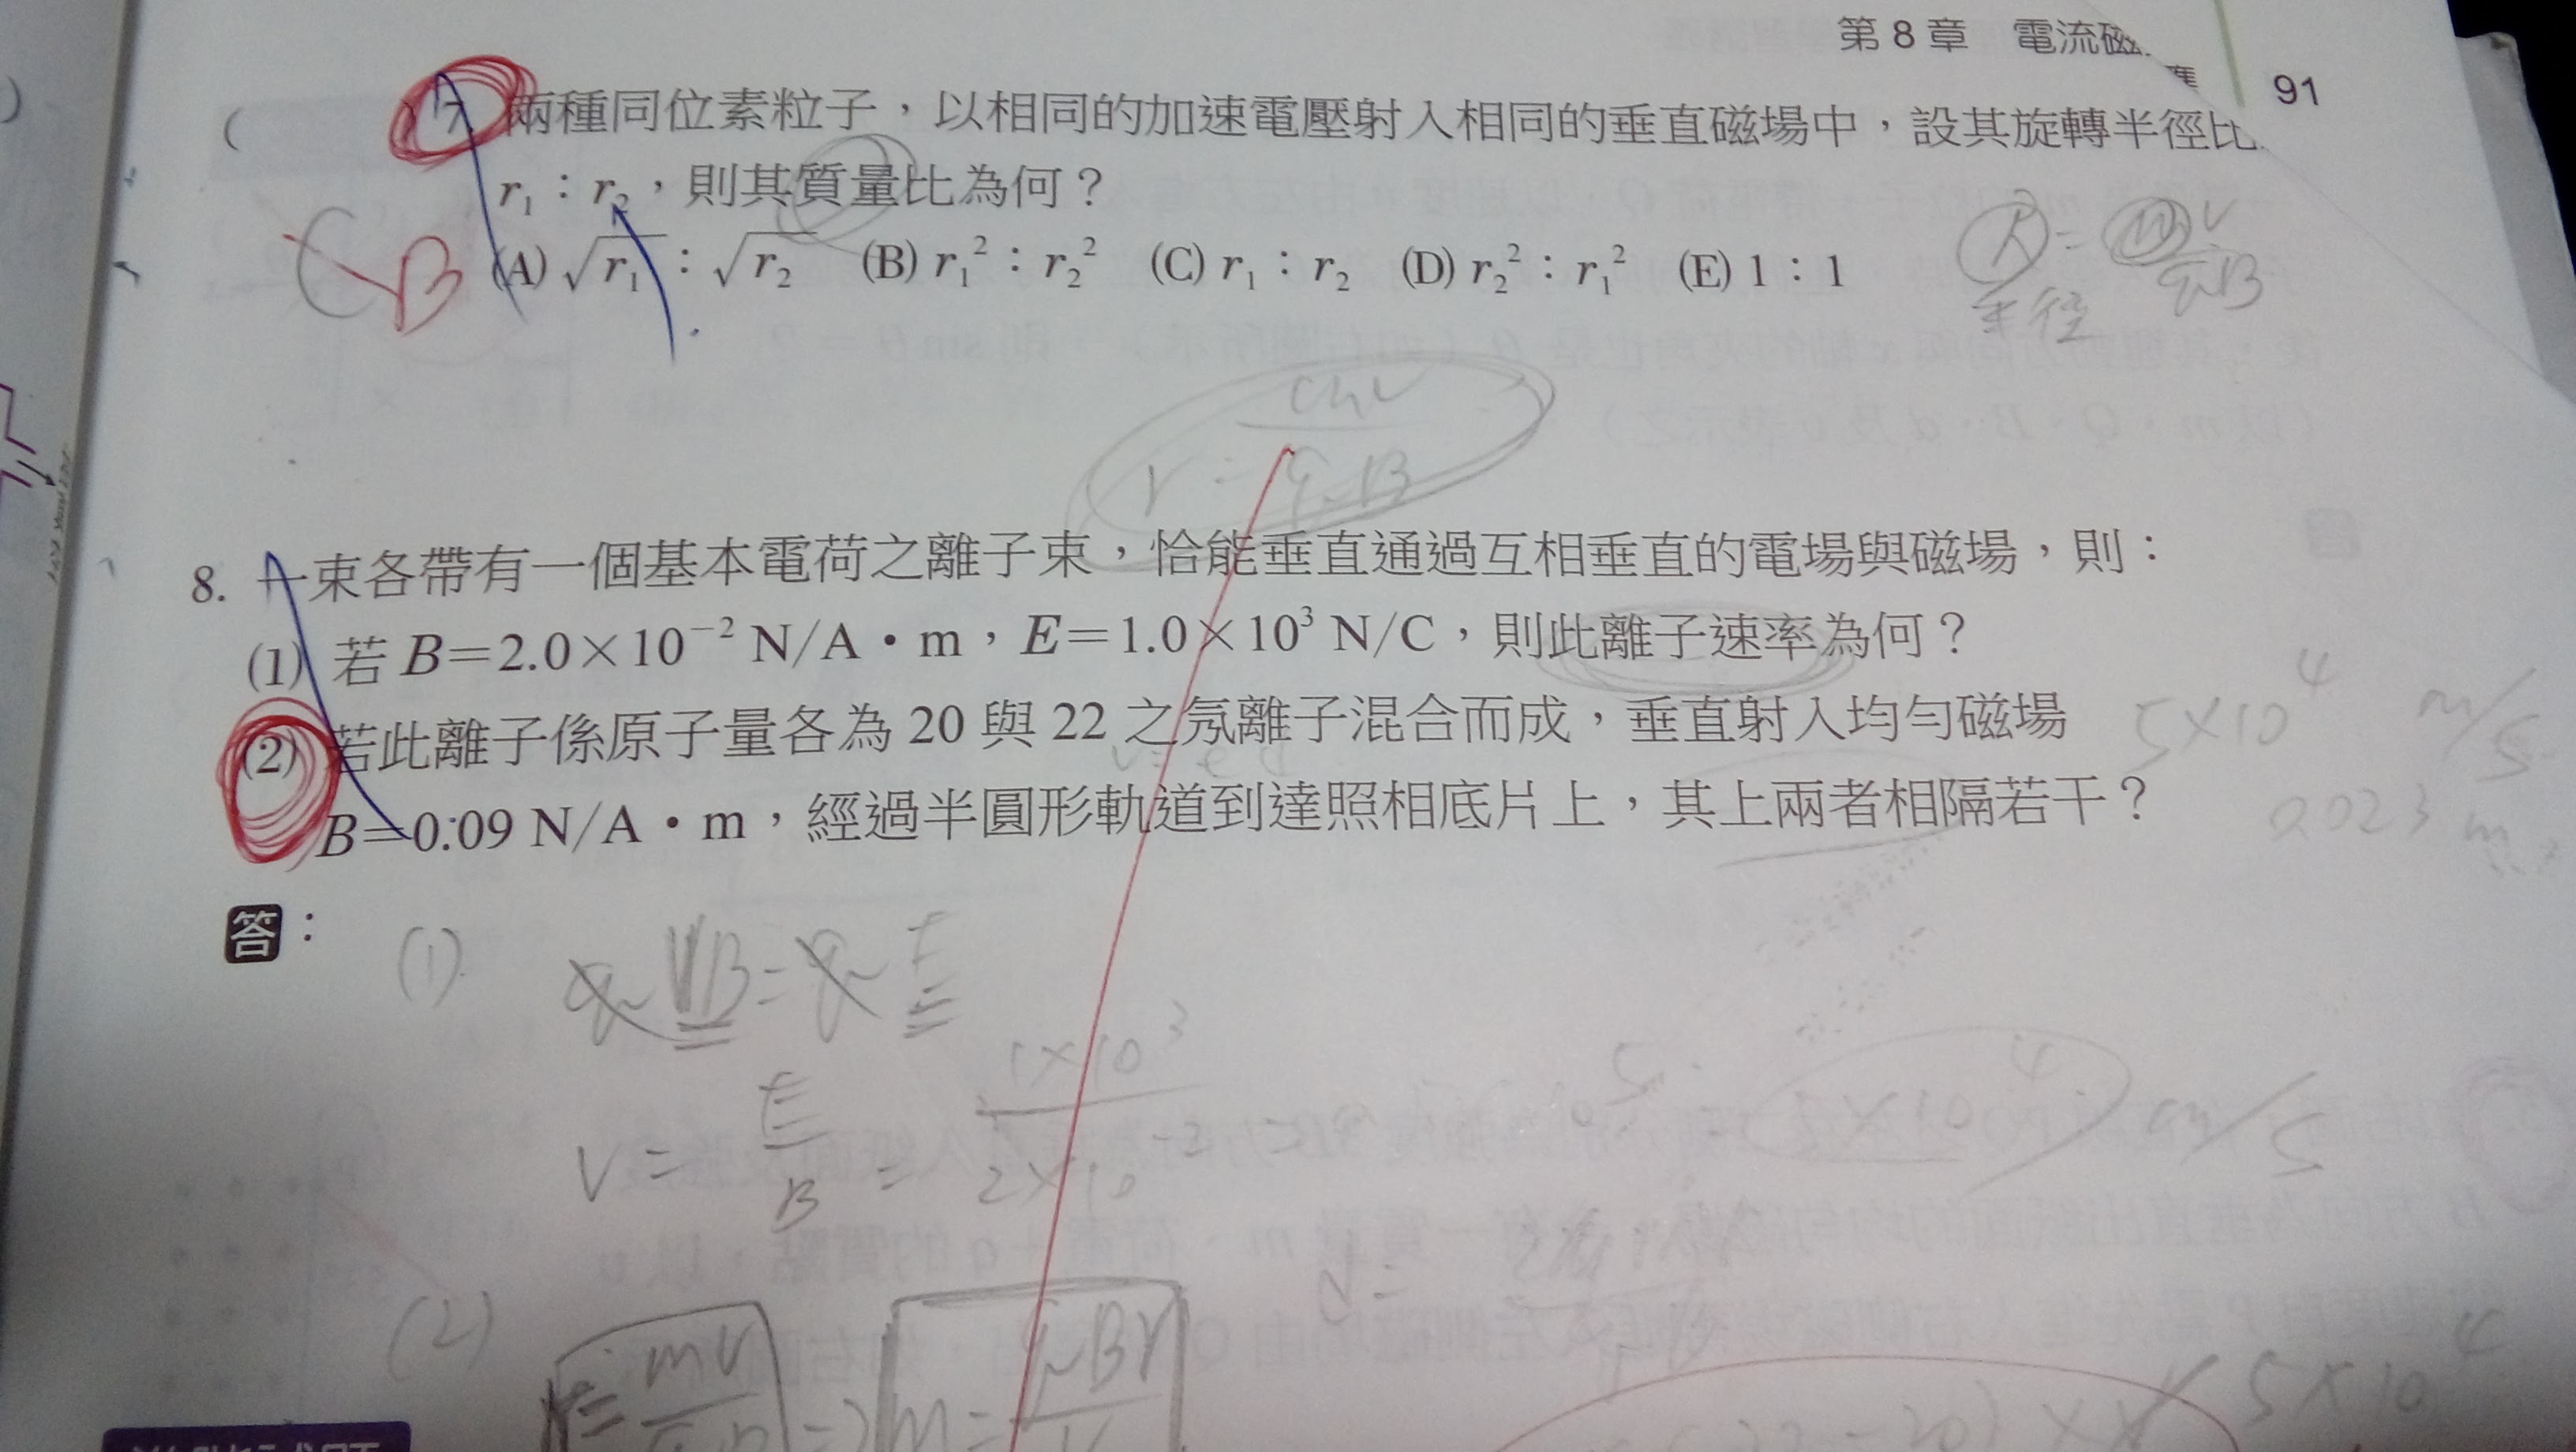 第8章 電流磁
91
( ) 7. 兩種同位素粒子，以相同的加速電壓射入相同的垂直磁場中，設其旋轉半徑比
r₁：r₂，則其質量比為何？
(A) √r₁：√r₂ (B) r₁²：r₂² (C) r₁：r₂ (D) r₂²：r₁² (E) 1：1
C B
R = mv/qB
半徑
r = mv/qB
8. 一束各帶有一個基本電荷之離子束，恰能垂直通過互相垂直的電場與磁場，則：
(1) 若 B=2.0×10⁻² N/A·m，E=1.0×10³ N/C，則此離子速率為何？
(2) 若此離子係原子量各為 20 與 22 之氖離子混合而成，垂直射入均勻磁場
B=0.09 N/A·m，經過半圓形軌道到達照相底片上，其上兩者相隔若干？
5×10⁴ m/s
0.023 m
答：
(1) qVB = qE
V = E/B = 1×10³/2×10⁻²
5×10⁴ m/s
(2) r = mv/qB ⇒ m = qBr/v
5×10⁴